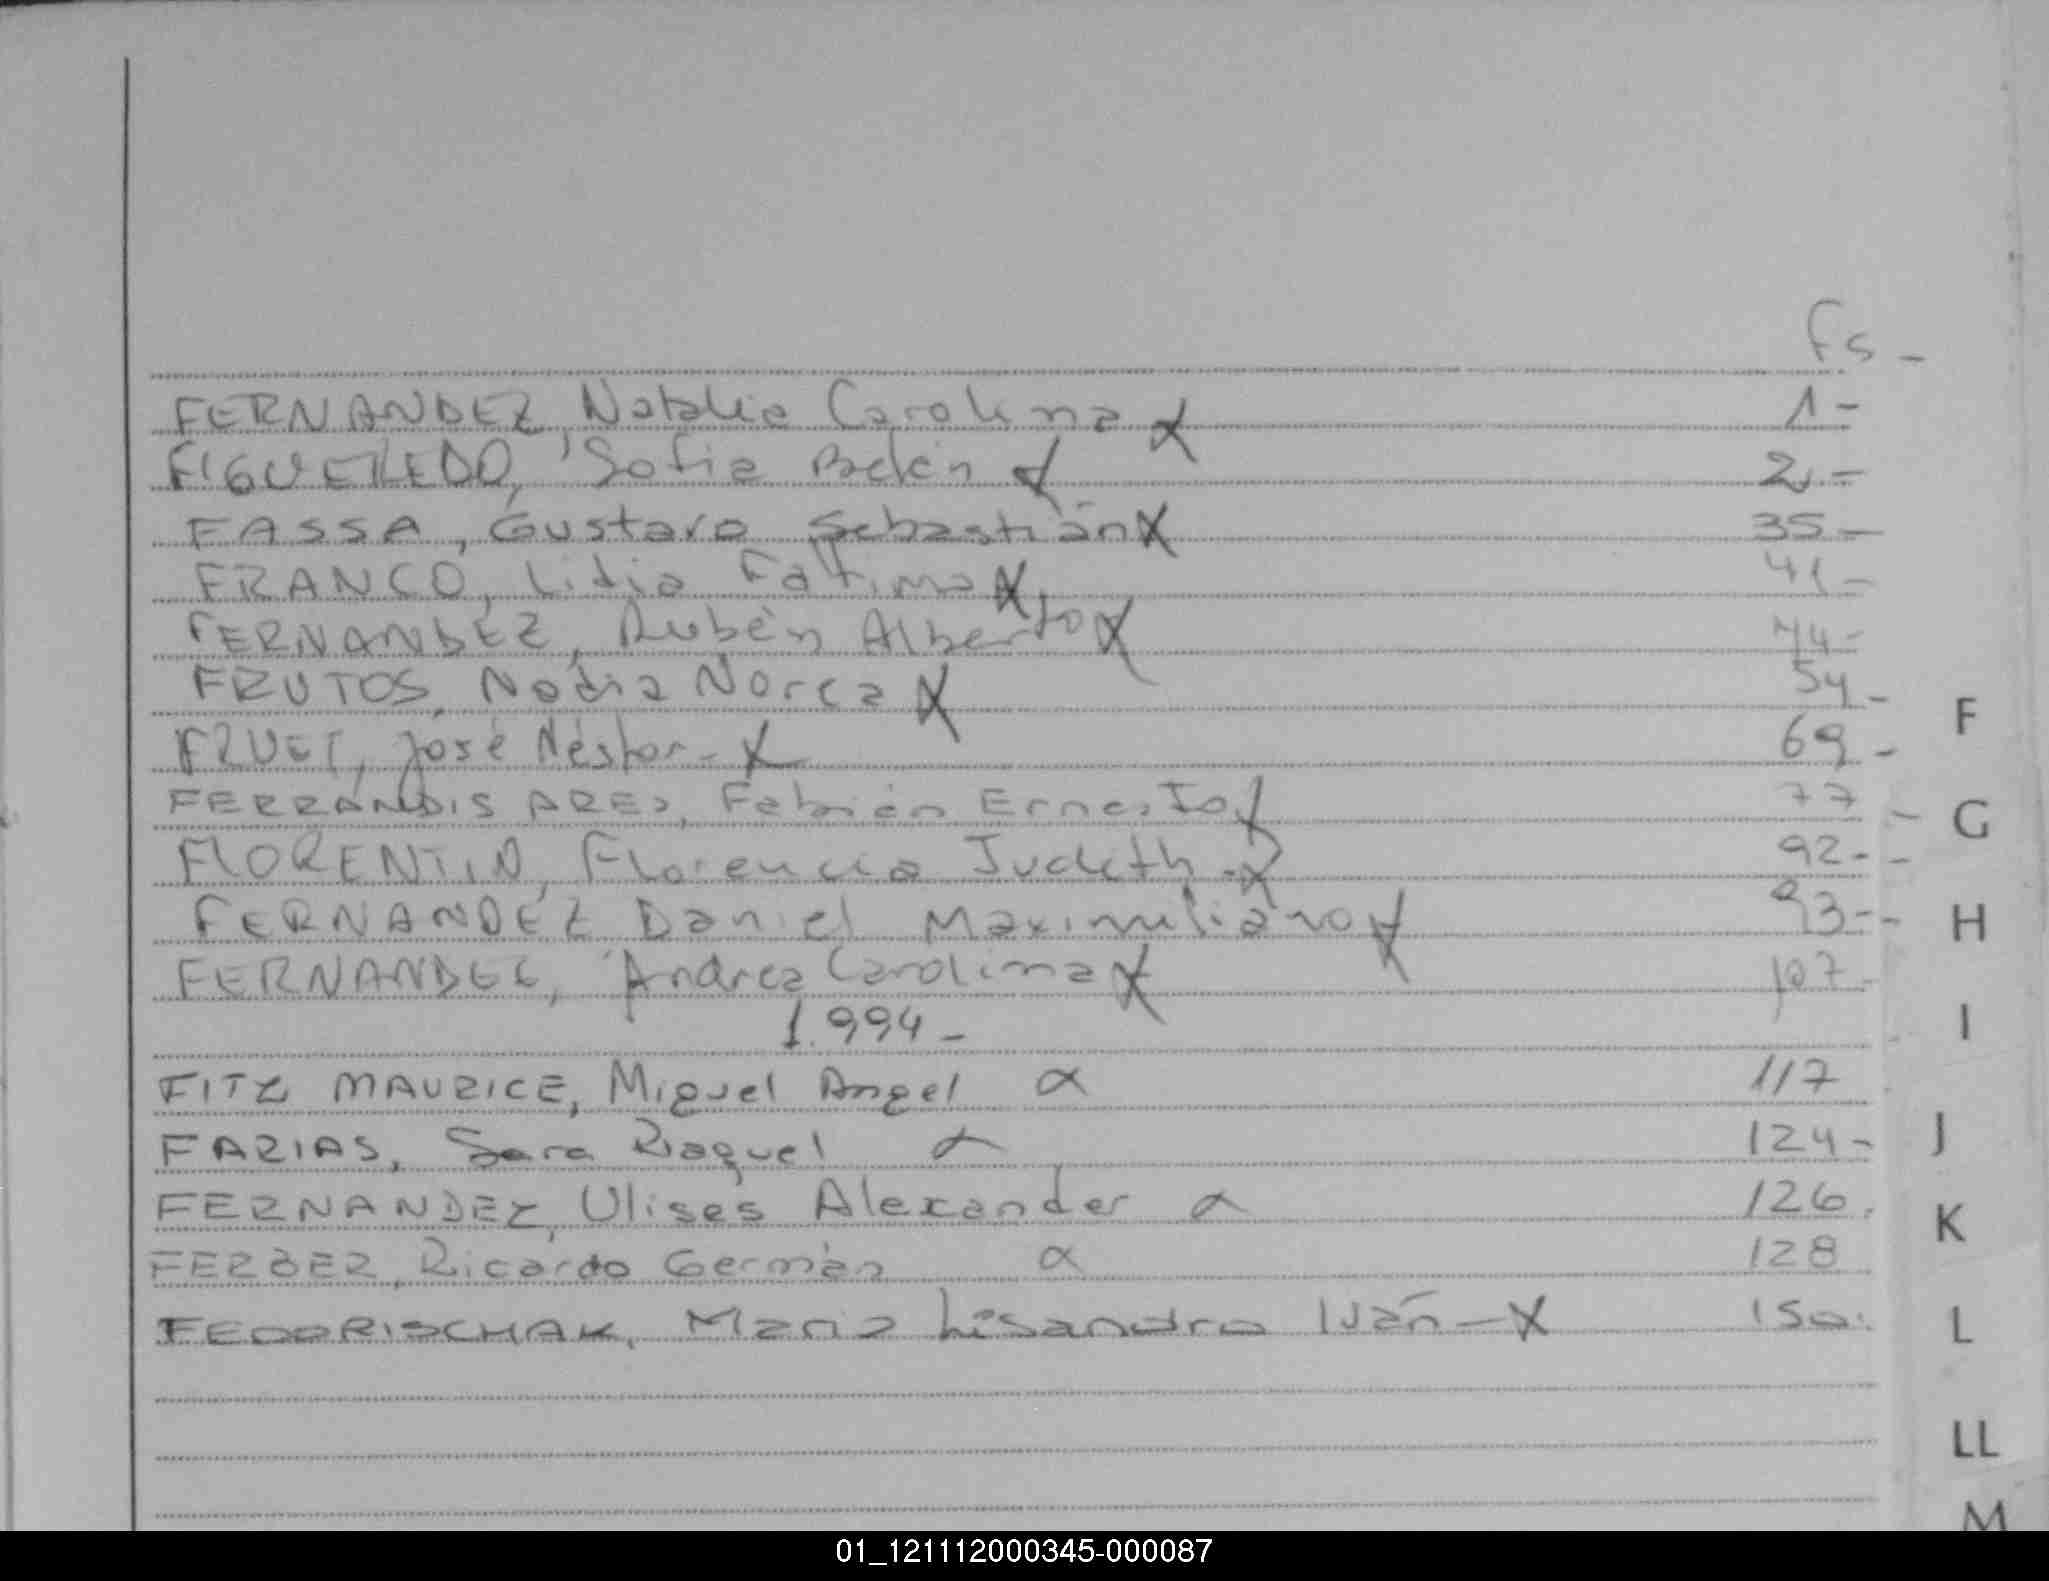 Fs -
FERNANDEZ, Natalia Carolina X 1 -
FIGUEREDO, Sofia Belén X 2 -
FASSA, Gustavo Sebastián X 35 -
FRANCO, Lidia Fatima X 41 -
FERNANDEZ, Rubén Alberto X 44 -
FRUTOS, Nadia Norca X 54 -
FRUET, José Néstor - X 69 -
FERRANDIS ARES, Fabián Ernesto X 77 -
FLORENTIN, Florencia Judith - X 92 - -
FERNANDEZ Daniel Maximiliano X 93 - -
FERNANDEZ, Andrea Carolina X 107 -
1.994 -
FITZ MAURICE, Miguel Angel X 117
FARIAS, Sara Raquel X 124 -
FERNANDEZ, Ulises Alexander X 126.
FERBER, Ricardo Germán X 128
FEDORISCHAK, Mario Lisandro Iván - X 150.
F
G
H
I
J
K
L
LL
M
01_121112000345-000087